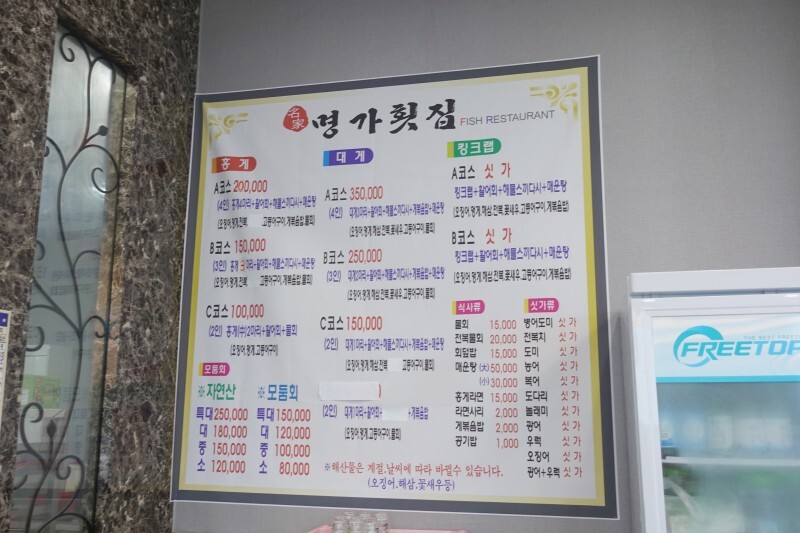 名家 명가횟집 FISH RESTAURANT
홍게
A코스 200,000
(4인) 홍게4마리+활어회+해물스끼다시+매운탕
(오징어,멍게,전복 고등어구이,게볶음밥,물회)
B코스 150,000
(3인) 홍게 마리+활어회+해물스끼다시+매운탕
(오징어,멍게,전복 고등어구이,게볶음밥)
C코스 100,000
(2인) 홍게(中)2마리+활어회+물회
(오징어,멍게,고등어구이)
모둠회
※자연산
특대 250,000
대 180,000
중 150,000
소 120,000
※모둠회
특대 150,000
대 120,000
중 100,000
소 80,000
대게
A코스 350,000
(4인) 대게2마리+활어회+해물스끼다시+게볶음밥+매운탕
(오징어,멍게,해삼,전복,꽃새우,고등어구이,물회)
B코스 250,000
(3인) 대게2마리+활어회+해물스끼다시+게볶음밥+매운탕
(오징어,멍게,해삼,전복,꽃새우,고등어구이,물회)
C코스 150,000
(2인) 대게1마리+활어회+해물스끼다시+게볶음밥+매운탕
(오징어,멍게,해삼,전복 고등어구이,물회)
(2인) 대게1마리+활어회+ +게볶음밥
(오징어,멍게,해삼,전복 고등어구이,물회)
킹크랩
A코스 싯가
킹크랩+활어회+해물스끼다시+매운탕
(오징어,멍게,해삼,전복,꽃새우,고등어구이,게볶음밥,물회)
B코스 싯가
킹크랩+활어회+해물스끼다시+매운탕
(오징어,멍게,해삼,전복,꽃새우,고등어구이,게볶음밥)
식사류
물회 15,000
전복물회 20,000
회덮밥 15,000
매운탕 (大) 50,000
(小) 30,000
홍게라면 15,000
라면사리 2,000
게볶음밥 2,000
공기밥 1,000
싯가류
병어도미 싯가
전복치 싯가
도미 싯가
농어 싯가
복어 싯가
도다리 싯가
놀래미 싯가
광어 싯가
우럭 싯가
오징어 싯가
광어+우럭 싯가
※해산물은 계절,날씨에 따라 바뀔수 있습니다.
(오징어,해삼,꽃새우등)
FREETOP